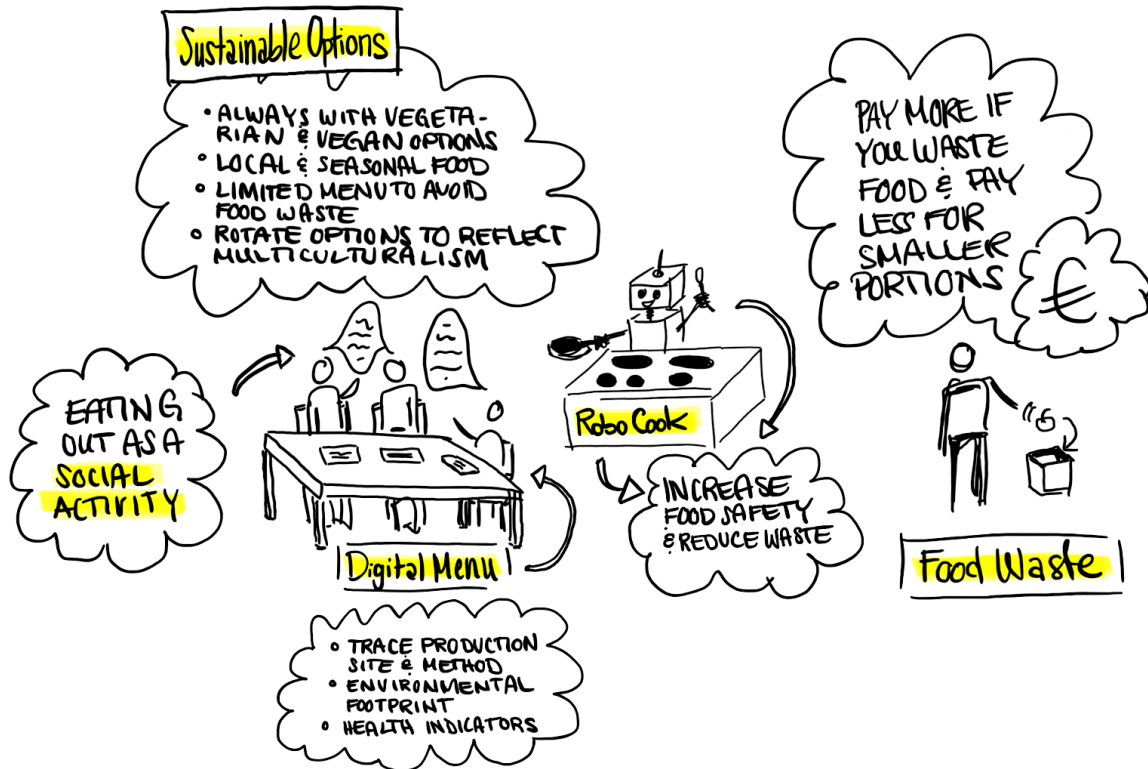 Sustainable Options
• ALWAYS WITH VEGETA-
RIAN & VEGAN OPTIONS
• LOCAL & SEASONAL FOOD
• LIMITED MENU TO AVOID
FOOD WASTE
• ROTATE OPTIONS TO REFLECT
MULTICULTURALISM
EATING
OUT AS A
SOCIAL
ACTIVITY
Digital Menu
• TRACE PRODUCTION
SITE & METHOD
• ENVIRONMENTAL
FOOTPRINT
• HEALTH INDICATORS
Robo Cook
INCREASE
FOOD SAFETY
& REDUCE WASTE
PAY MORE IF
YOU WASTE
FOOD & PAY
LESS FOR
SMALLER
PORTIONS
€
Food Waste